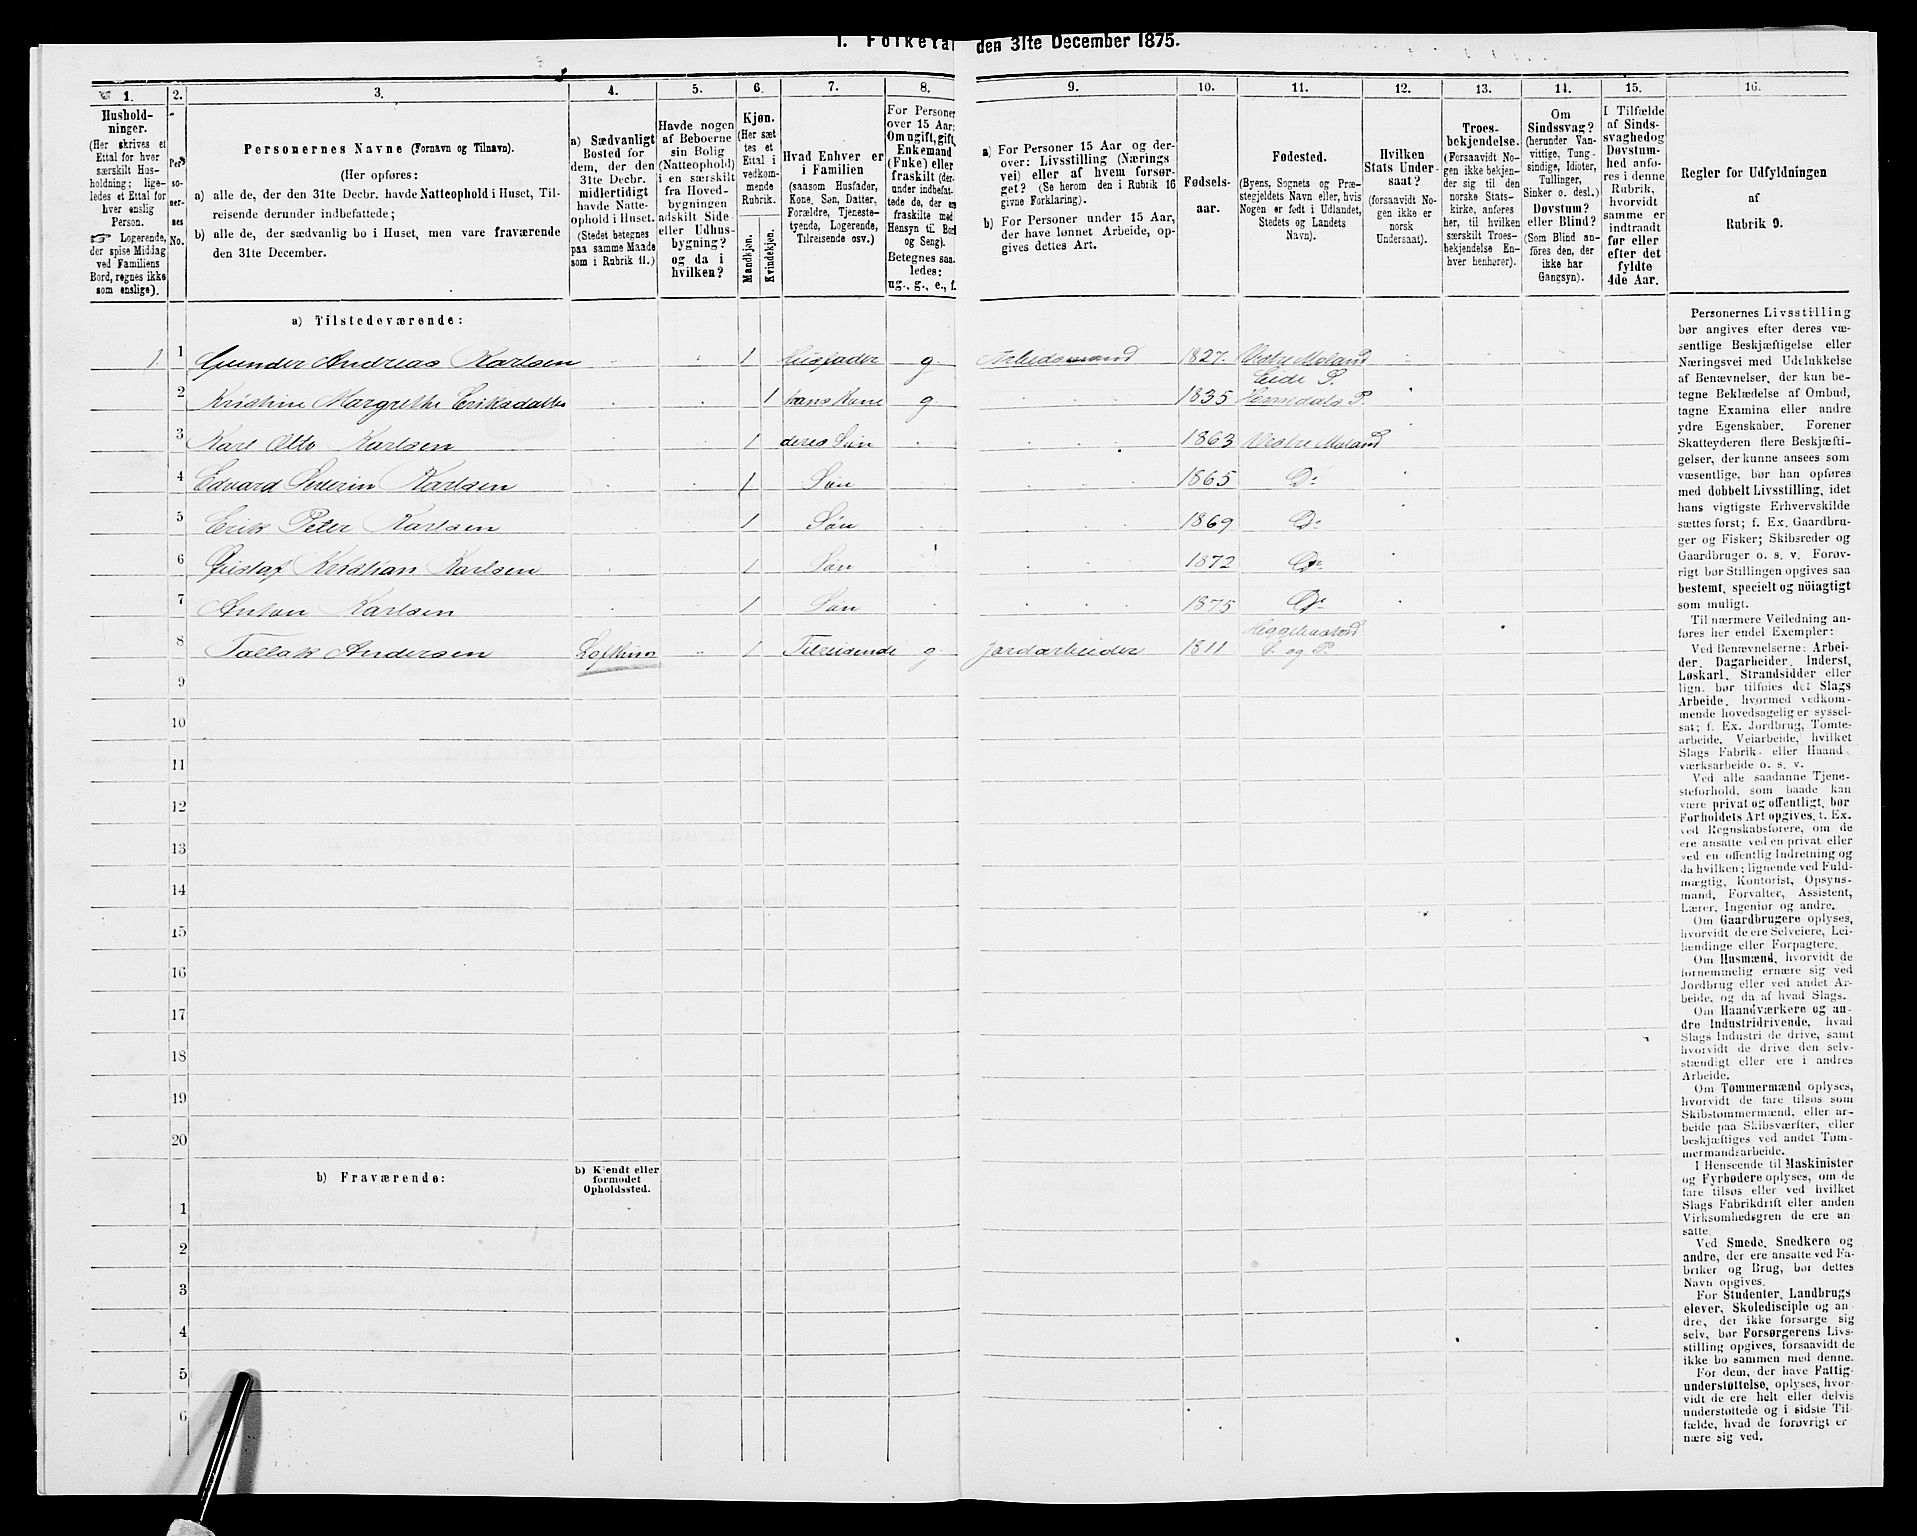 1. Folketal den 31te December 1875.
1. 2. 3. 4. 5. 6. 7. 8. 9. 10. 11. 12. 13. 14. 15. 16.
Hushold-
ninger.
(Her skrives et
Ettal for hver
særskilt Hus-
holdning; lige-
ledes et Ettal for
hver enslig
Person.
☞ Logerende,
der spise Middag
ved Familiens
Bord, regnes ikke
som enslige).
Per-
so-
ner-
nes
No.
Personernes Navne (Fornavn og Tilnavn).
(Her opføres:
a) alle de, der den 31te Decbr. havde Natteophold i Huset, Til-
reisende derunder indbefattede;
b) alle de, der sædvanlig bo i Huset, men vare fraværende
den 31te December.
a) Sædvanligt
Bosted for
dem, der den
31te Decbr.
midlertidigt
havde Natte-
ophold i Huset.
(Stedet betegnes
paa samme Maade
som i Rubrik 11.)
Havde nogen
af Beboerne
sin Bolig
(Natteophold)
i en særskilt
fra Hoved-
bygningen
adskilt Side-
eller Udhus-
bygning?
og da i
hvilken?
Kjøn.
(Her sæt-
tes et
Ettal i
vedkom-
mende
Rubrik.
Mandkjøn.
Kvindekjøn.
Hvad Enhver er
i Familien
(saasom Husfader,
Kone, Søn, Datter,
Forældre, Tjeneste-
tyende, Logerende,
Tilreisende osv.)
For Personer
over 15 Aar:
Om ugift, gift,
Enkemand
(Enke) eller
fraskilt (der-
under indbefat-
tede de, der ere
fraskilte med
Hensyn til Bord
og Seng).
Betegnes saa-
ledes:
ug., g., e., f.
a) For Personer 15 Aar og der-
over: Livsstilling (Nærings-
vei) eller af hvem forsør-
get? (Se herom den i Rubrik 16
givne Forklaring).
b) For Personer under 15 Aar,
der have lønnet Arbeide, op-
gives dettes Art.
Fødsels-
aar.
Fødested.
(Byens, Sognets og Præ-
stegjeldets Navn eller, hvis
Nogen er født i Udlandet,
Stedets og Landets
Navn).
Hvilken
Stats Under-
saat?
(forsaavidt No-
gen ikke er
norsk
Undersaat).
Troes-
bekjendelse.
(Forsaavidt No-
gen ikke bekjen-
der sig til den
norske Stats-
kirke, anføres
her, til hvilken
særskilt Troes-
bekjendelse En-
hver henhører).
Om
Sindssvag?
(herunder Van-
vittige, Tung-
sindige, Idioter,
Tullinger,
Sinker o. desl.)
Døvstum?
eller Blind?
(Som Blind an-
føres den, der
ikke har
Gangsyn).
I Tilfælde
af Sinds-
svaghed og
Døvstum-
hed anfø-
res i denne
Rubrik,
hvorvidt
samme er
indtraadt
før eller
efter det
fyldte
4de Aar.
Regler for Udfyldningen
af
Rubrik 9.
a) Tilstedeværende:
1. 1 Gunder Andreas Karlsen 1 Husfader g. Arbeidsmand 1827. Vestre Moland
Eide S.
2 Kristine Margrethe Eriksdatter 1 hans Kone g 1835 P.
3 Karl Otto Karlsen 1 deres Søn 1863 Vestre Moland
4 Edvard Severin Karlsen 1 Søn 1865 Do
5 Erik Peter Karlsen 1 Søn 1869 Do
6 Gustaf Kristian Karlsen 1 Søn 1872 Do
7 Anton Karlsen 1 Søn 1875 Do
8 Tallak Andersen 1 Tilreisende g. Jordarbeider 1811 S. og P.
9
10
11
12
13
14
15
16
17
18
19
20
b) Fraværende: b) Kjendt eller
formodet
Opholdssted.
1
2
3
4
5
6
Personernes Livsstilling
bør angives efter deres væ-
sentlige Beskjæftigelse eller
Næringsvei med Udelukkelse
af Benævnelser, der kun be-
tegne Beklædelse af Ombud,
tagne Examina eller andre
ydre Egenskaber. Forener
Skatteyderen flere Beskjæfti-
gelser, der kunne ansees som
væsentlige, bør han opføres
med dobbelt Livsstilling, idet
hans vigtigste Erhvervskilde
sættes først; f. Ex. Gaardbru-
ger og Fisker; Skibsreder og
Gaardbruger o. s. v. Forøv-
rigt bør Stillingen opgives saa
bestemt, specielt og nöiagtigt
som muligt.
Til nærmere Veiledning an-
føres her endel Exempler:
Ved Benævnelserne: Arbei-
der, Dagarbeider, Inderst,
Løskarl, Strandsidder eller
lign. bør tilføies det Slags
Arbeide, hvormed vedkom-
mende hovedsagelig er syssel-
sat; f. Ex. Jordbrug, Tomte-
arbeide, Veiarbeide, hvilket
Slags Fabrik- eller Haand-
værksarbeide o. s. v.
Ved alle saadanne Tjene-
steforhold, som baade kan
være privat og offentligt, bør
Forholdets Art opgives, f. Ex.
ved Regnskabsførere, om de
ere ansatte ved en privat eller
ved en offentlig Indretning og
da hvilken; lignende ved Fuld-
mægtig, Kontorist, Opsyns-
mand, Forvalter, Assistent,
Lærer, Ingeniør og andre.
Om Gaardbrugere oplyses,
hvorvidt de ere Selveiere, Lei-
lændinge eller Forpagtere.
Om Husmænd, hvorvidt de
fornemmelig ernære sig ved
Jordbrug eller ved andet Ar-
beide, og da af hvad Slags.
Om Haandværkere og an-
dre Industridrivende, hvad
Slags Industri de drive, samt
hvorvidt de drive den selv-
stændigt eller ere i andres
Arbeide.
Om Tømmermænd oplyses,
hvorvidt de fare tilsøs som
Skibstømmermænd, eller ar-
beide paa Skibsværfter, eller
beskjæftiges ved andet Tøm-
mermandsarbeide.
I Henseende til Maskinister
og Fyrbødere oplyses, om de
fare tilsøs eller ved hvilket
Slags Fabrikdrift eller anden
Virksomhedsgren de ere an-
satte.
Ved Smede, Snedkere og
andre, der ere ansatte ved Fa-
briker og Brug, bør dettes
Navn opgives.
For Studenter, Landbrugs-
elever, Skoledisciple og an-
dre, der ikke forsørge sig
selv, bør Forsørgerens Livs-
stilling opgives, forsaavidt de
ikke bo sammen med denne.
For dem, der have Fattig-
understøttelse, oplyses, hvor-
vidt de ere helt eller delvis
understøttede og i sidste Til-
fælde, hvad de forøvrigt er-
nære sig ved.